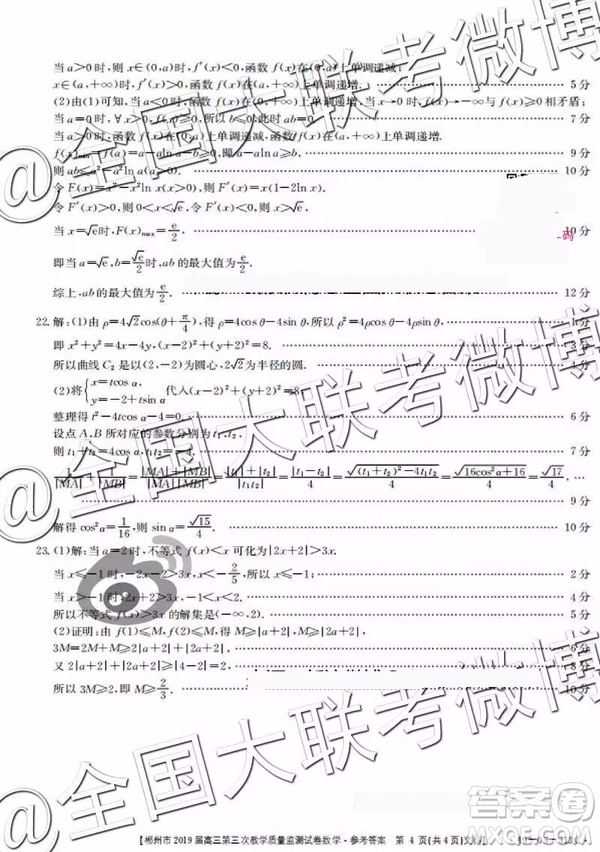 当a>0时,则x∈(0,a)时,f′(x)<0,函数f(x)在(0,a)上单调递减;
x∈(a,+∞)时,f′(x)>0,函数f(x)在(a,+∞)上单调递增. 5分
(2)由(1)可知,当a<0时,函数f(x)在(0,+∞)上单调递增,当x→0时,f(x)→-∞与f(x)≥0相矛盾;
当a=0时,∀x>0,f(x)≥0,所以b≤0,此时ab=0. 7分
当a>0时,函数f(x)在(0,a)上单调递减,函数f(x)在(a,+∞)上单调递增.
f(x)min=f(a)=a-alna-b≥0. 9分
则ab≤a²-a²lna(a>0). 10分
令F(x)=x²-x²lnx(x>0),则F′(x)=x(1-2lnx).
令F′(x)>0,则0<x<√e,令F′(x)<0,则x>√e.
当x=√e时,F(x)max=e/2. 10分
码
即当a=√e,b=√e/2时,ab的最大值为e/2.
综上,ab的最大值为e/2. 12分
22.解:(1)由ρ=4√2cos(θ+π/4),得ρ=4cosθ-4sinθ,所以ρ²=4ρcosθ-4ρsinθ,
即x²+y²=4x-4y,(x-2)²+(y+2)²=8,
所以曲线C₂是以(2,-2)为圆心,2√2为半径的圆.
(2)将{x=tcosα, y=-2+tsinα 代入(x-2)²+(y+2)²=8,
整理得t²-4tcosα-4=0. 6分
设点A,B所对应的参数分别为t₁,t₂,
则t₁+t₂=4cosα,t₁t₂=-4. 7分
1/|MA|+1/|MB|=(|MA|+|MB|)/(|MA||MB|)=(|t₁|+|t₂|)/|t₁t₂|=|t₁-t₂|/4=√((t₁+t₂)²-4t₁t₂)/4=√(16cos²α+16)/4=√17/4.
9分
解得cos²α=1/16,则sinα=√15/4. 10分
23.(1)解:当a=2时,不等式f(x)<x可化为|2x+2|>3x.
当x≤-1时,-2x-2>3x,x<-2/5,所以x≤-1; 2分
当x>-1时,2x+2>3x,x<2,所以-1<x<2. 4分
所以不等式f(x)>3x的解集是(-∞,2). 5分
(2)证明:由f(1)≤M,f(2)≤M,得M≥|a+2|,M≥|2a+2|,
3M=2M+M≥2|a+2|+|2a+2|.
又2|a+2|+|2a+2|≥|4-2|=2,
所以3M≥2,即M≥2/3. 10分
【郴州市2019届高三第三次教学质量监测试卷数学·参考答案 第4页(共4页)
@全国大联考微博
@全国大联考微博
@全国大联考微博